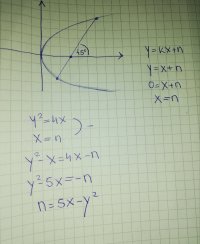 45°
y=kx+n
y=x+n
0=x+n
x=n
y²=4x
x=n
y²-x=4x-n
y²-5x=-n
n=5x-y²